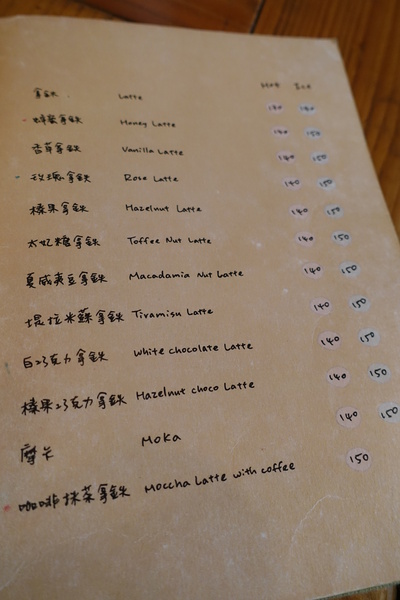 Hot Ice
拿鐵 Latte
蜂蜜拿鐵 Honey Latte 140 150
香草拿鐵 Vanilla Latte 140 150
玫瑰拿鐵 Rose Latte 140 150
榛果拿鐵 Hazelnut Latte 140 150
太妃糖拿鐵 Toffee Nut Latte 140 150
夏威夷豆拿鐵 Macadamia Nut Latte 140 150
堤拉米蘇拿鐵 Tiramisu Latte 140 150
白巧克力拿鐵 White chocolate Latte 140 150
榛果巧克力拿鐵 Hazelnut choco Latte 140 150
摩卡 Moka 140 150
咖啡抹茶拿鐵 Moccha Latte with coffee 150